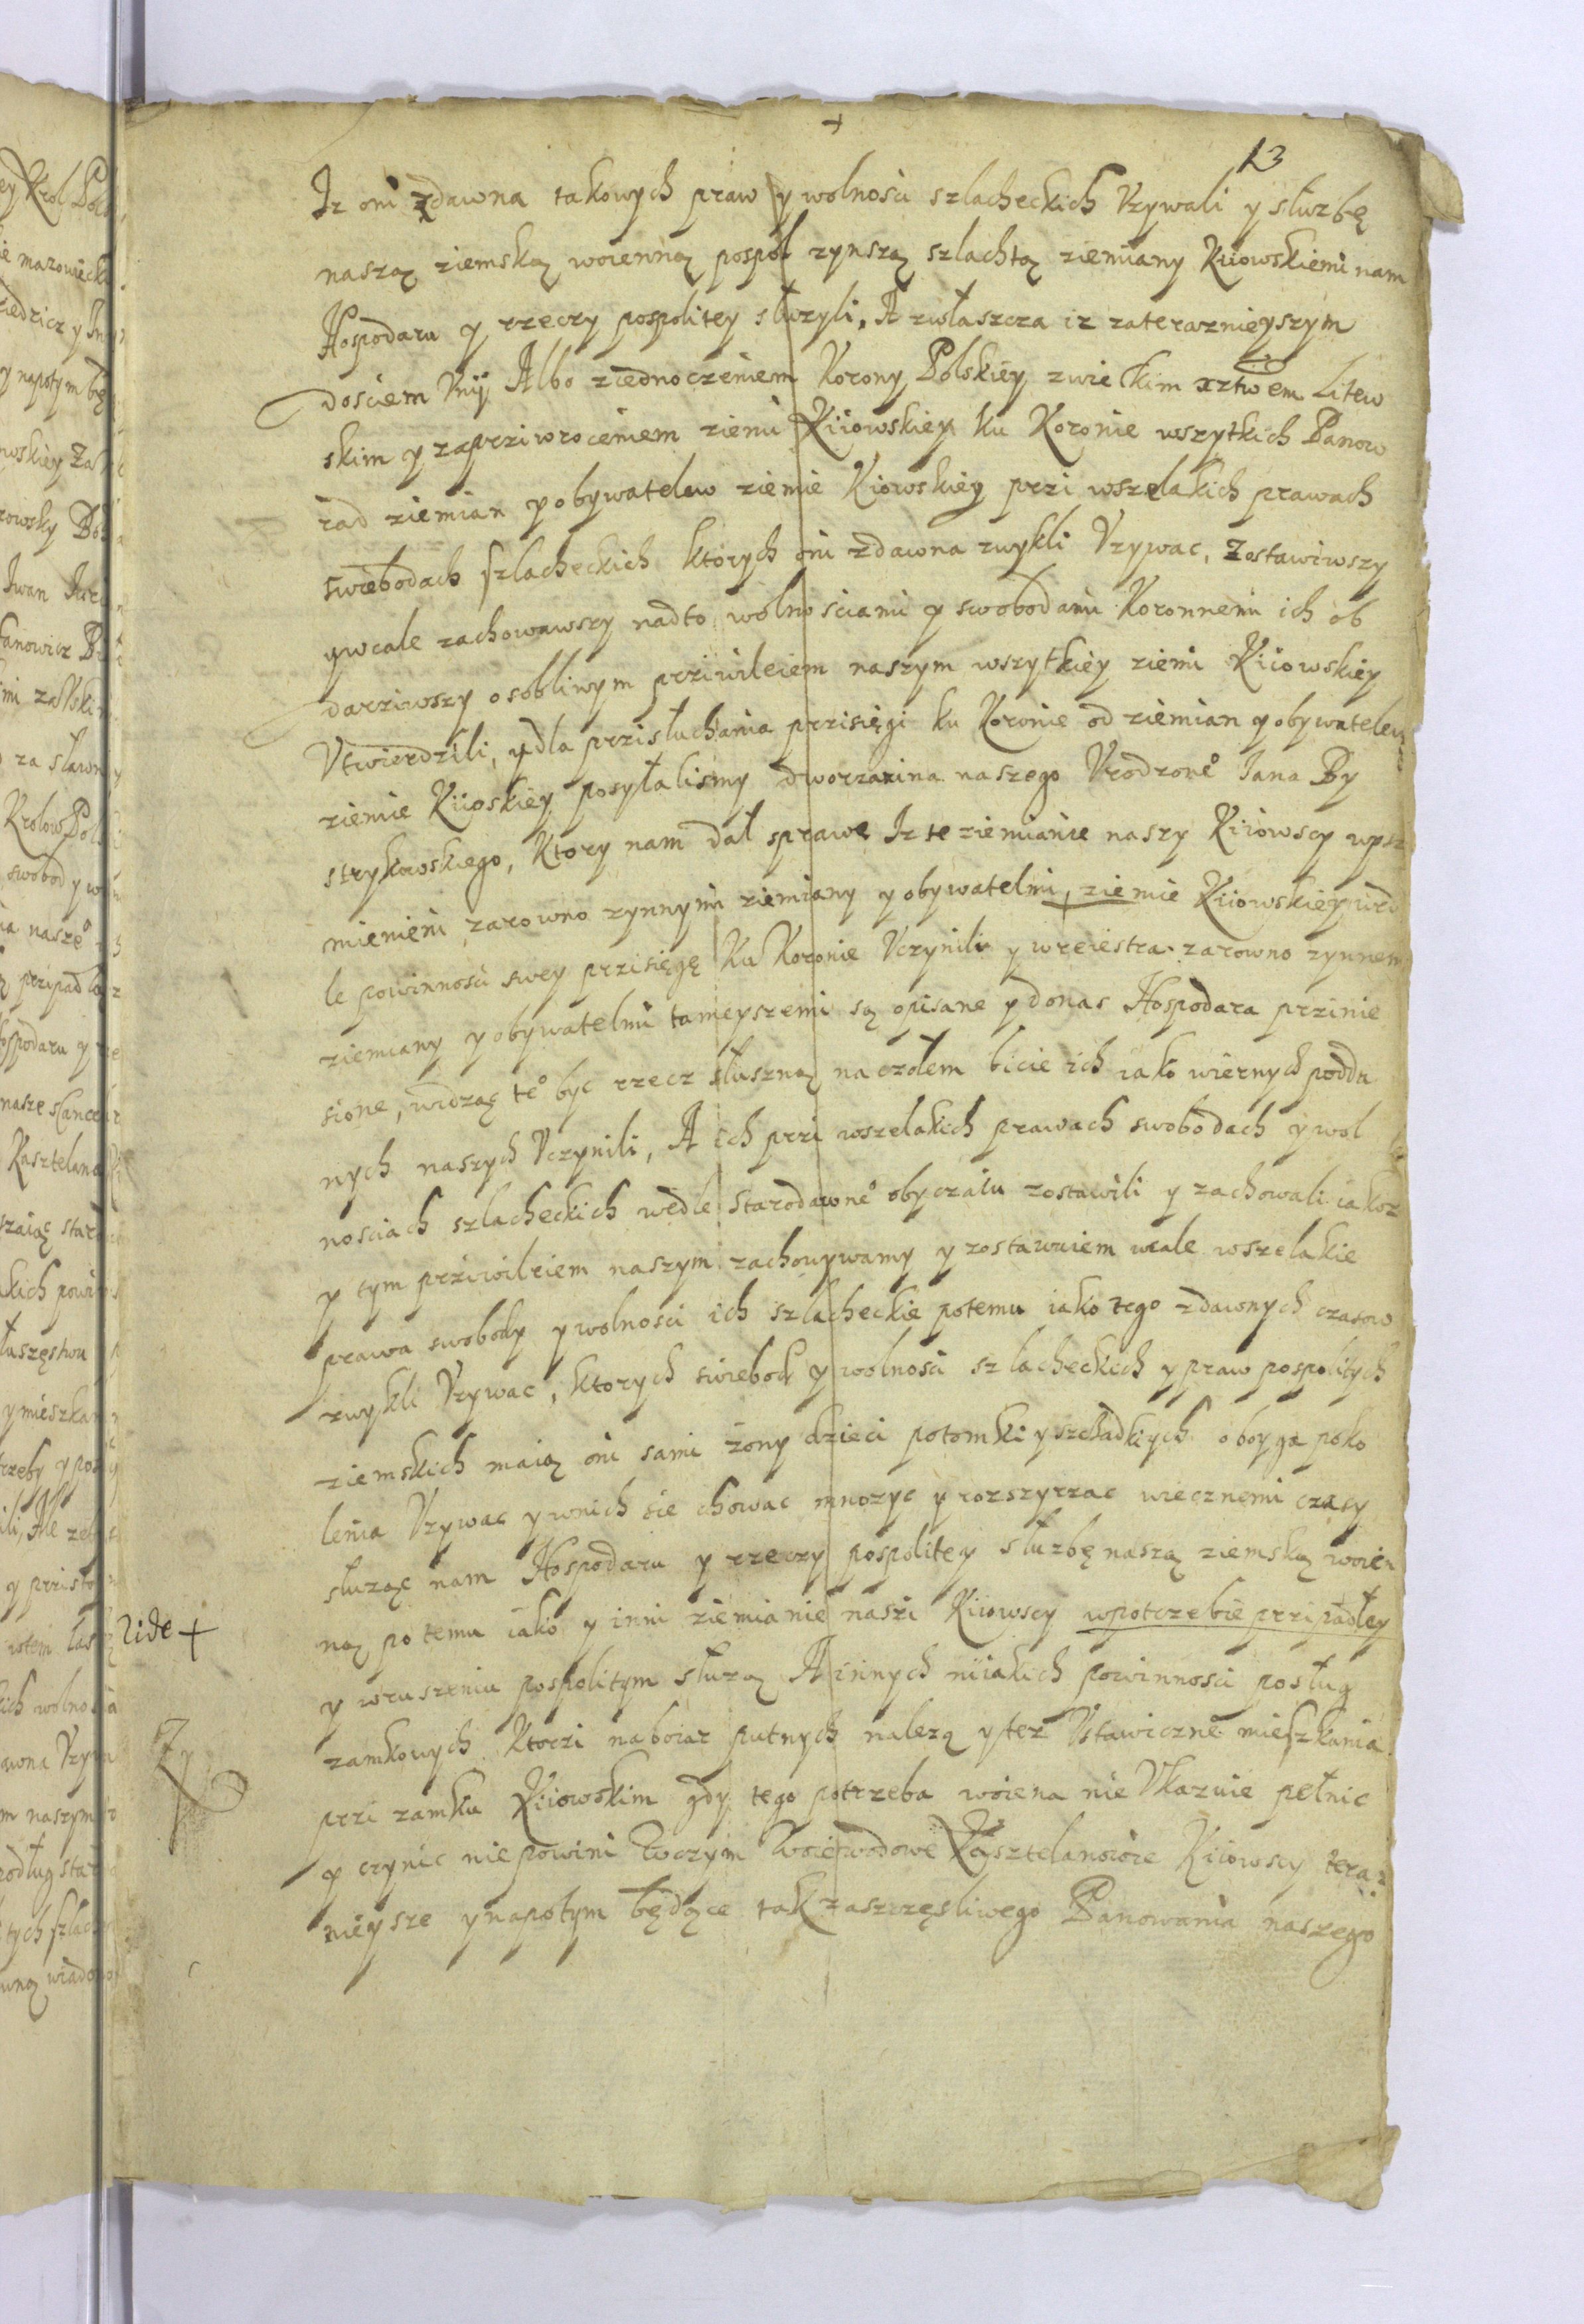 13
Iz oni zdawna takowych praw y wolnosci szlacheckich Vzywali y słuzbę
naszą ziemską woienną pospół zynszą szlachtą ziemiany Kiiowskiemi nam
Hospodaru y rzeczy pospolitey słuzyli, A zwłaszcza iz zateraznieyszym
dosciem Vnij Albo ziednoczeniem Korony Polskiey zwielkim xztwem Litew
skim y zaprziwroceniem ziemi Kiiowskiey ku Koronie wszytkich Panow
rad ziemian y obywatelow ziemie Kiowskiey przi wszelakich prawach
swiebodach szlacheckich ktorych oni zdawna zwykli Vzywac, Zostawiwszy
ywcale zachowawszy nadto wolnosciami y swobodami Koronnemi ich ob
darziwszy osobliwym prziwileiem naszym wszytkiey ziemi Kiiowskiey
Vtwierdzili, ydla przisłuchania przisięgi ku Koronie od ziemian y obywatelew
ziemie Kiioskiey posyłalismy dworzanina naszego Vrodzone° Jana By
strykowskiego, Ktory nam dał sprawe Iz te ziemianie naszy Kiiowscy wpsz
mienieni zarowno zynnymi ziemiany y obywatelmi, ziemie Kiiowskiey wed
le powinnosci swey przisięgę Ku Koronie Vczynili y wreiestra zarowno zynnem
ziemiany y obywatelmi tameyszemi są opisane ydonas Hospodara przinie
sione, widząc te° byc rzecz słuszną na czołem bicie ich iako wiernych podda
nych naszych Vczynili, A ich przi wszelakich prawach swobodach y wol
nosciach szlacheckich wedle Starodawne° obyczaiu zostawili y zachowali iakoz
y tym prziwileiem naszym zachowywamy y zostawuiem wcale wszelakie
prawa swobody y wolnosci ich szlacheckie potemu iako tego zdawnych czasow
zwykli Vzywac, ktorych swiebod y wolnosci szlacheckich y praw pospolitych
ziemskich maią oni sami żony dzieci potomki y szczadki ych oboyga poko
lenia Vzywac y wnich sie chowac mnozyc y rozszyrzac wiecznemi czasy
słuząc nam Hospodaru y rzeczy pospolitey słuzbę naszą ziemską woien
ną po temu iako y inni ziemianie naszi Kiiowscy wpotrzebie przipadłey
Vide +
y wruszeniu pospolitym słuzą A innych niiakich powinnosci posług
zamkowych Ktorzi naboiar putnych nalezą y tez Vstawiczne° mieszkania
przi zamku Kiiowskim gdy tego potrzeba woiena nie Vkazuie pełnic
y czynic niepowini Woczym Woiewodowe Kasztelanowie Kiiowscy teraz
nieysze ynapotym będące tak zaszczęsliwego Panowania naszego